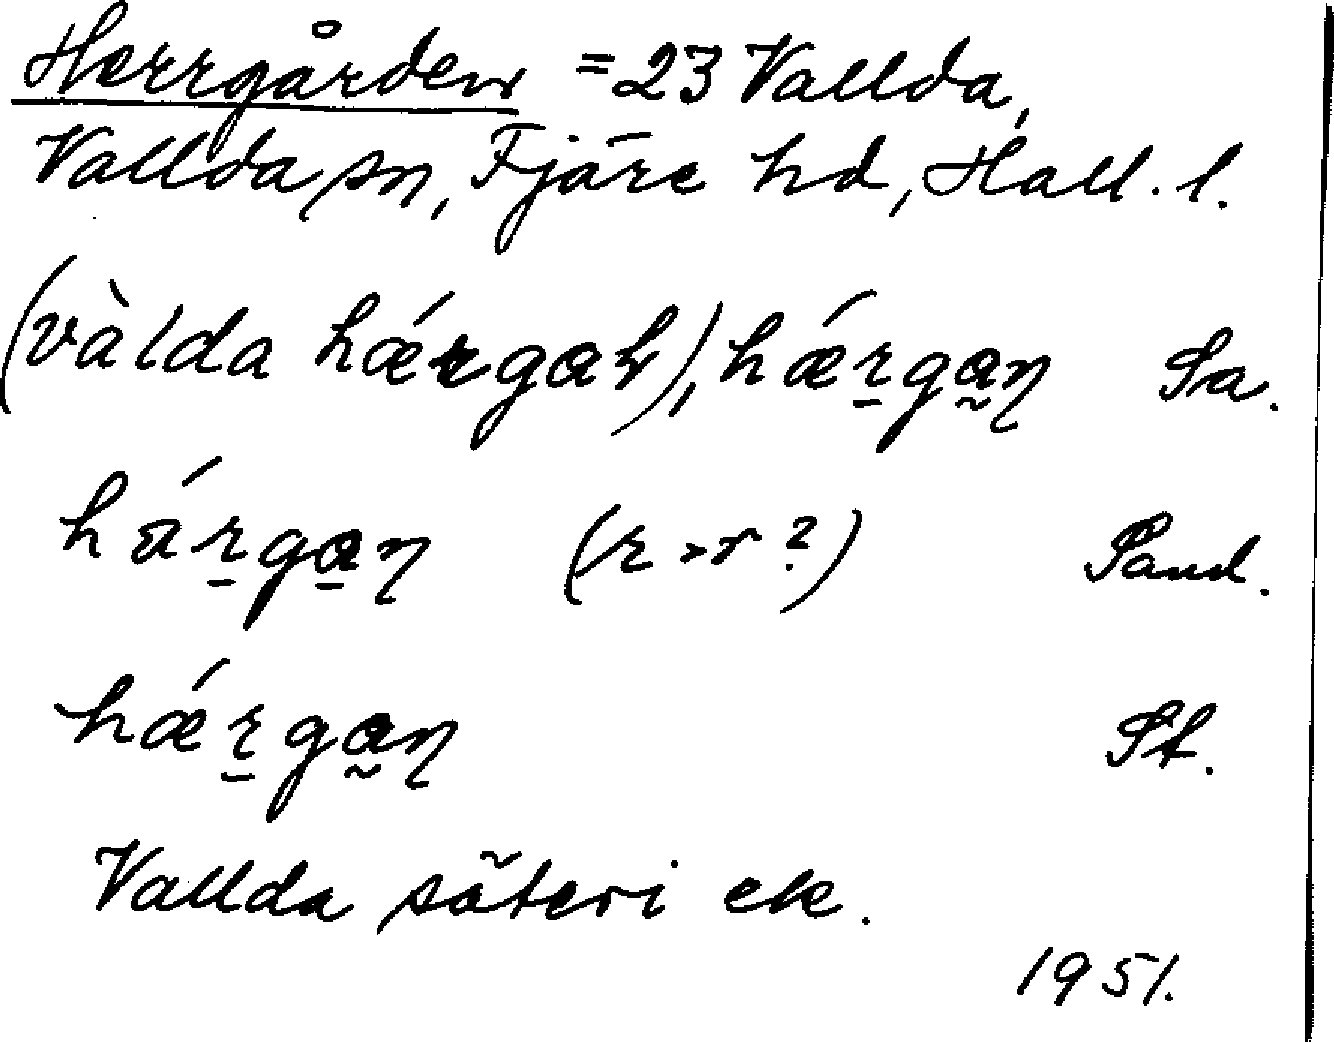 Herrgården = 23 Vallda,
Vallda sn, Fjäre hd, Hall. l.
(vàlda hǽrgah), hǽr̲ga̰ꞑ Sa.
hár̲ga̲ꞑ (r > r?) Sand.
hǽr̲ga̰ꞑ St.
Vallda säteri ek.
1951.